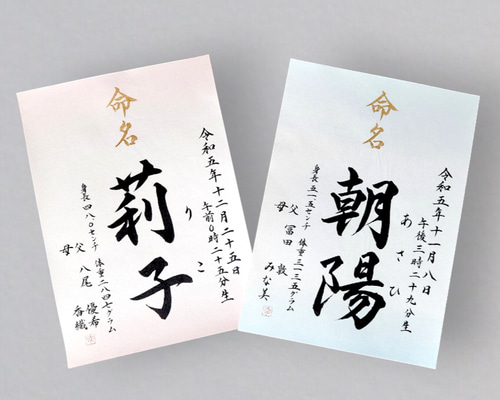 命名
令和五年十二月二十五日
午前0時二十五分生
りこ
莉子
身長四八・〇センチ 体重二八四七グラム
父 八尾 優希
母 香織
命名
令和五年十一月八日
午後三時二十九分生
あさひ
朝陽
身長五一・五センチ 体重三一三五グラム
父 冨田 敦
母 みな美